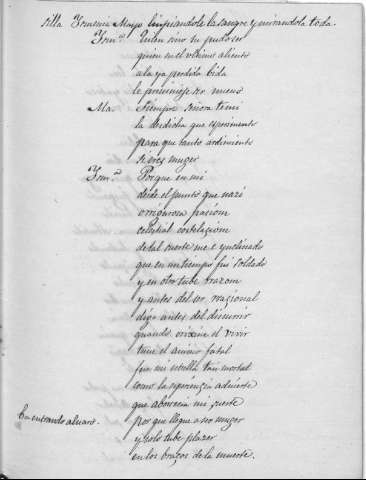 silla Ysmenia Mayo limpiandole la sangre y mirandola toda.
Ysm.ª Quien sino tu pudo ser
quien en el ultimo aliento
a la ya perdida bida
le
Ma. Siempre señora temi
la desdicha que esperimento
para que tanto ardimiento
si eres muger
Ysm.ª Porque en mi
desde el punto que nazi
o rrigurosa pasion
celestial costelazion
de tal suerte me e ynclinado
que en un tiempo fui soldado
y en otro tube brazon
y antes del ser rracional
digo antes del discurrir
quando orixine el vivir
tuve el animo fatal
fue mi estrella tan mortal
como la esperienzia advierte
que aborrecia mi suerte
por que llegue a ser muger
y solo tube plazer
en los brazos de la muerte.
Ba entrando alvaro.